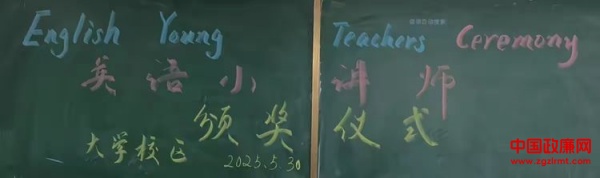 English Young Teachers Ceremony
英语小讲师
颁奖仪式
大学校区 2025.5.30
中国政廉网
www.zgzlrmt.com